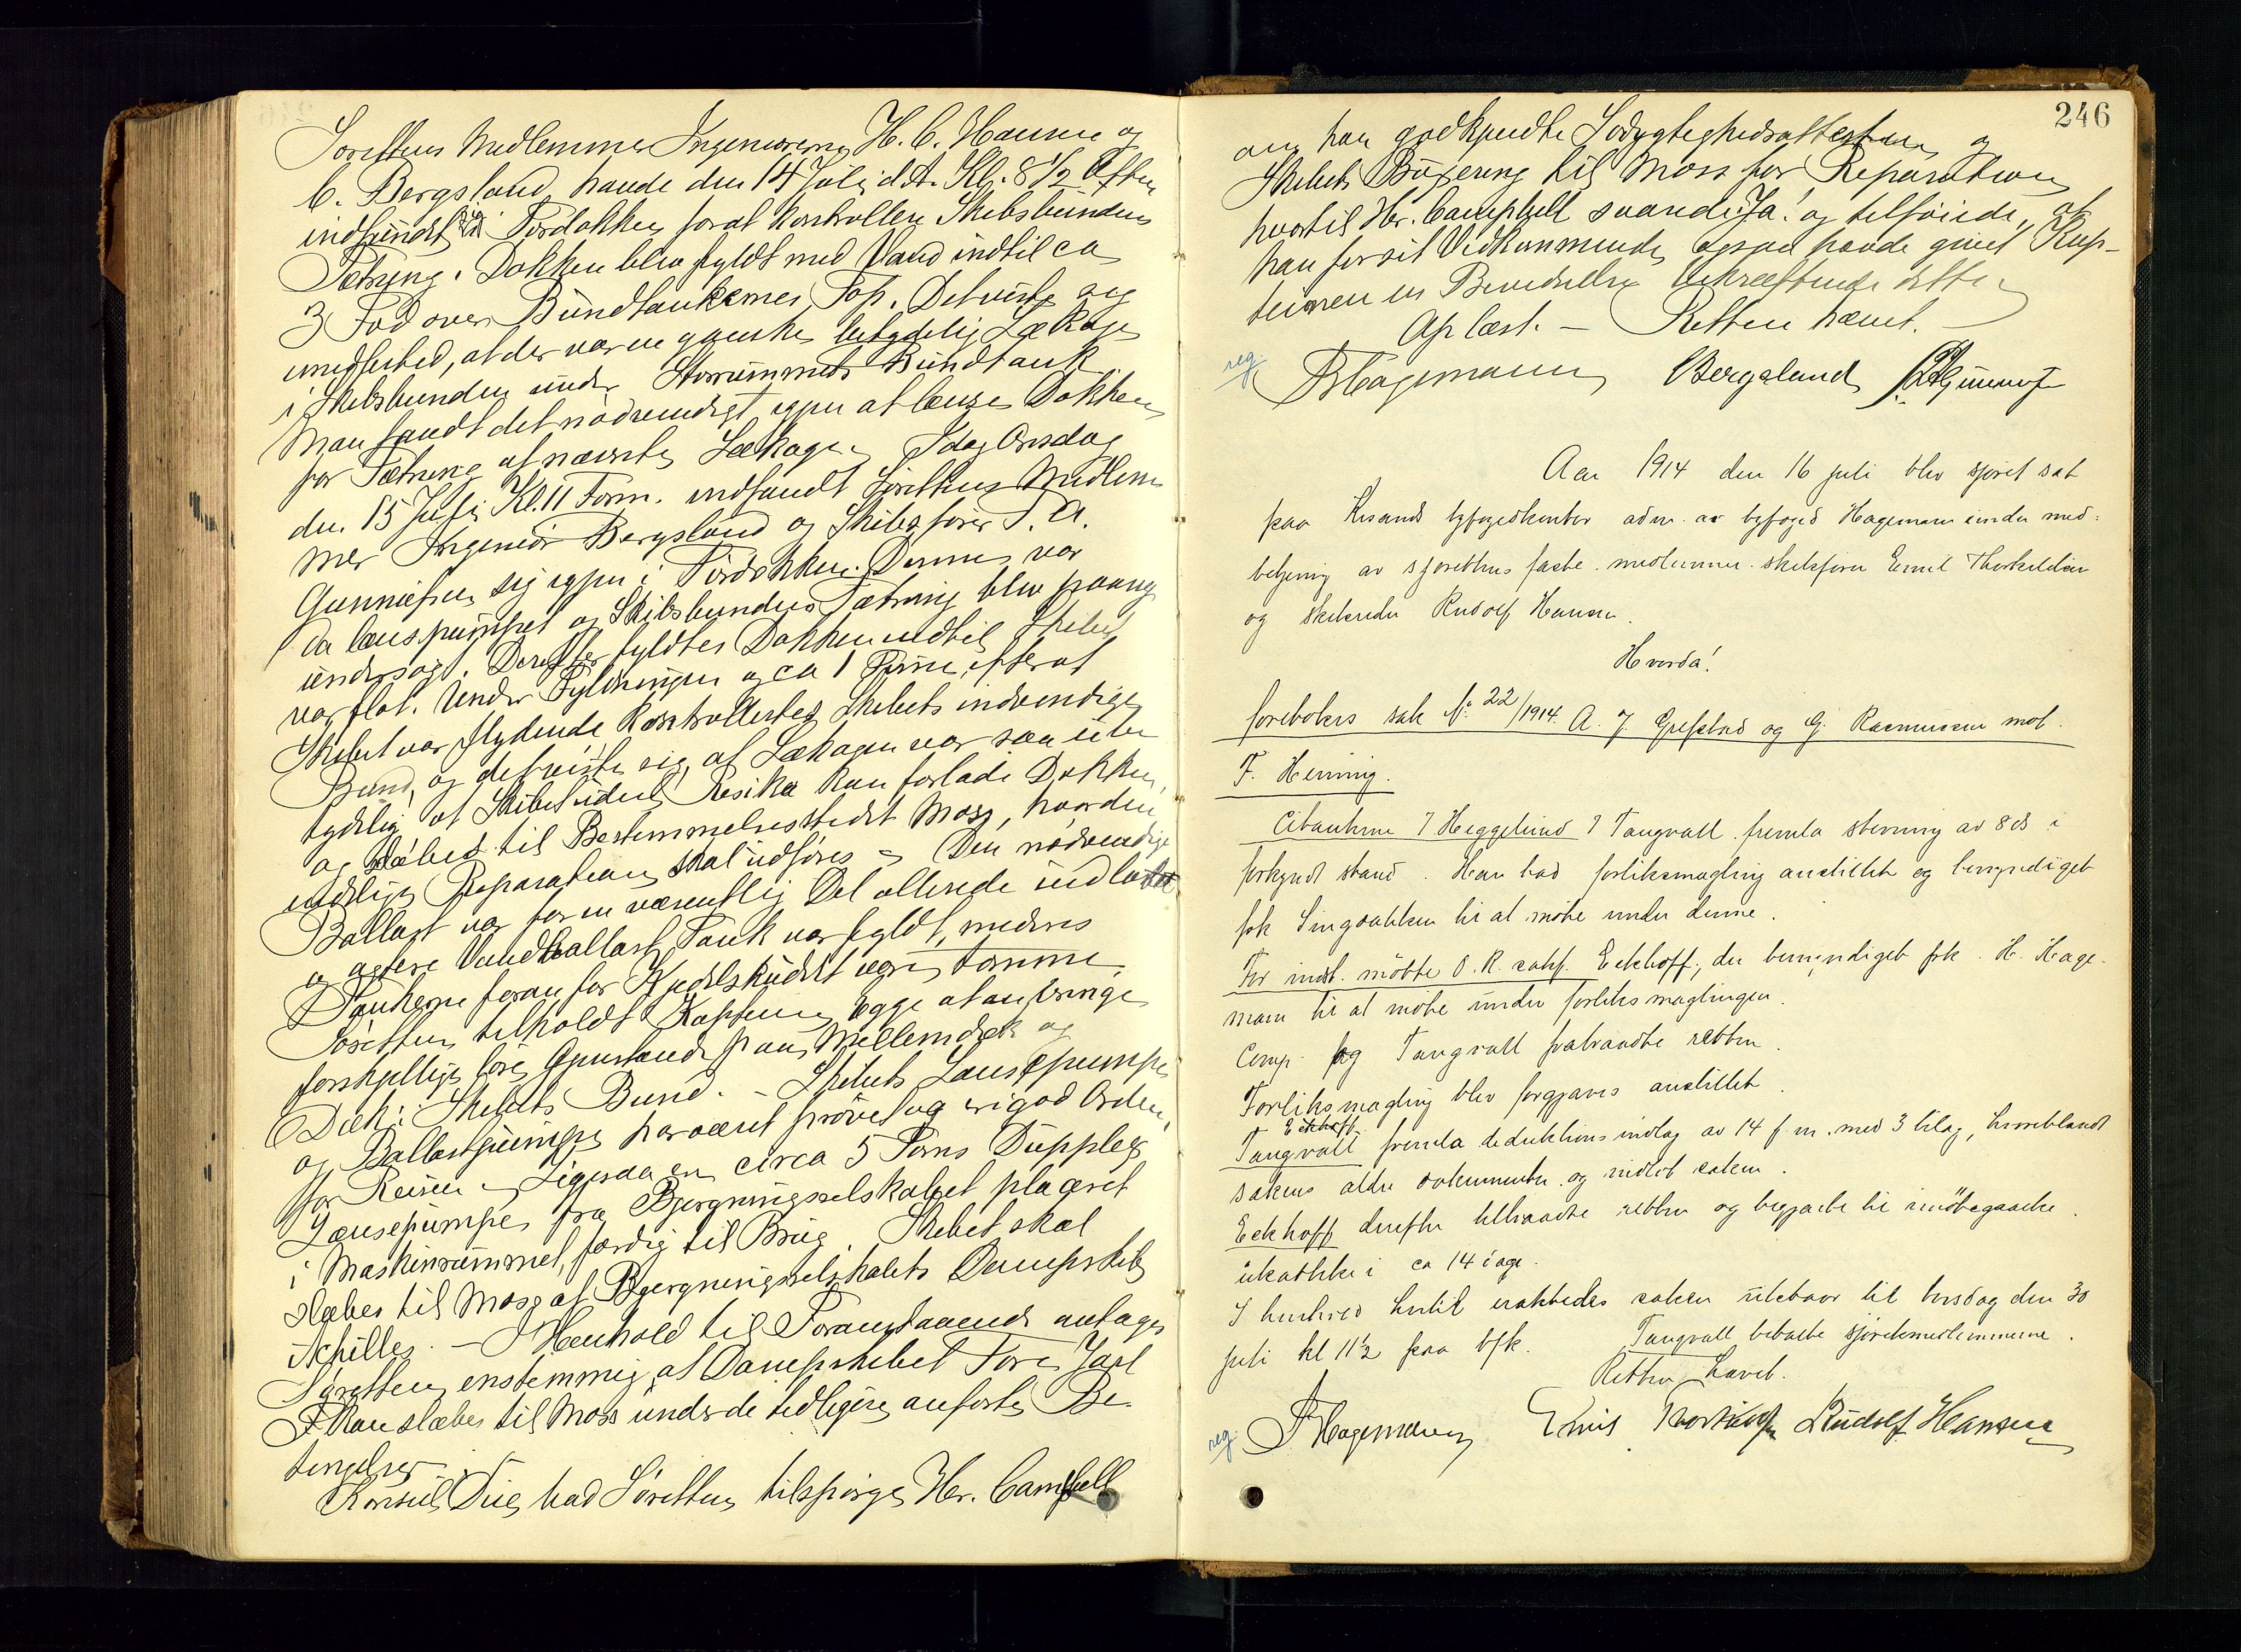 Sørettens Medlemmer Ingeniørerne H. C. Hansen og
C. Bergsland havde den 14 Juli d.A. Kl. 8 1/2 Aften
indfundet sig i Tørdokken forat kontrollere Skibsbundens
Tætning. Dokken blev fyldt med Vand indtil ca
3 Fod over Bundtankernes Top. Det viste sig
imidlertid, at der var en ganske betydelig Lækage
i Skibsbunden under Storrummets Bundtank
Man fandt det nødvendigt igjen at lænse Dokken
for Tætning af nævnte Lækage. Idag Onsdag
den 15 Juli Kl. 11 Form. indfandt Sørettens Medlem
mer Ingeniør Bergsland og Skibsfører T. A.
Gunnufsen sig igjen i Tørdokken. Denne var
da lænspumpet og Skibsbundens Tætning blev paany
undersøgt. Derefter fyldtes Dokken indtil Skibet
var flot. Under Fyldningen og ca 1 Time efterat
Skibet var flydende kontrollertes Skibets indvendige
Bund, og det viste sig, at Lækagen var saa ube
tydelig at Skibet uden Risiko kan forlade Dokken
og slæbes til Bestemmelsesstedet Moss, hvor den
endelige Reparation skal udføres – Den nødvendige
Ballast var for en væsentlig Del allerede indladet
og agtere Vandballast Tank var fyldt, medens
Tankerne foran for Kjedelskuddet være tomme.
Søretten tilholdt Kaptein Egge at anbringe
forskjellige løse Gjenstande paa Mellemdæk og
Dæk i Skibets Bund. – Skibets Lænsepumpe
og Ballastpumpe har været prøvet og er i god Orden
for Reisen – Ligesaa en circa 5 Toms Duppleks
Lænsepumpe fra Bjergningsselskabet placeret
i Maskinrummet, færdig til Brug. Skibet skal
slæbes til Moss af Bjergningsselskabets Dampskib
Achilles. – I Henhold til Foranstaaende antager
Søretten enstemmig, at Dampskibet Tore Jarl
kan slæbes til Moss under de tidligere anførte Be-
tingelser.
Konsul Due bad Søretten tilspørge Hr. Campbell
246
om han godkjendte Sødygtighedsattesten og
Skibets Bugsering til Moss for Reparation
hvortil Hr. Campbell svarede: Ja! og tilføiede, at
han for sit Vedkommende ogsaa havde givet Kap-
teinen en Bevidnelse bekræftende dette.
Oplæst. – Retten hævet. –
reg.
Hagemann Bergsland T. A. Gunnufsen
Aar 1914 den 16 juli blev sjøret sat
paa Krsands byfogedkontor adm. av byfoged Hagemann under med-
betjening av sjørettens faste medlemmer skibsfører Emil Thorkildsen
og skibsreder Rudolf Hansen.
Hvorda!
foretokes sak No. 22/1914. A. J. Grefstad og G. Rasmussen mot
F. Henning.
Citanterne I Heggelund I Tangvall fremla stevning av 8 ds i
forkyndt stand. Han bad forliksmægling anstillet og bemyndiget
frk Singdahlsen til at møte under denne.
For indst. møtte O.R. sakf. Eckhoff, der bemyndiget frk. H. Hage-
mann til at møte under forliksmæglingen.
Comp. og Tangvall fratraadte retten.
Forliksmægling blev forgjæves anstillet.
Eckhoff
Tangvall fremla deduktionsindlæg av 14 f.m. med 3 bilag, hvoriblandt
sakens ældre dokumenter og indlot saken.
Eckhoff derefter tiltraadte retten og begjærte til imøtegaaelse
utsættelse i ca 14 dage.
I henhold hertil utsattedes saken utebaar til torsdag den 30
juli kl 11 1/2 paa bfk. Tangvall betalte sjøretsmedlemmerne.
Retten hævet.
reg.
Hagemann Emil Thorkildsen Rudolf Hansen